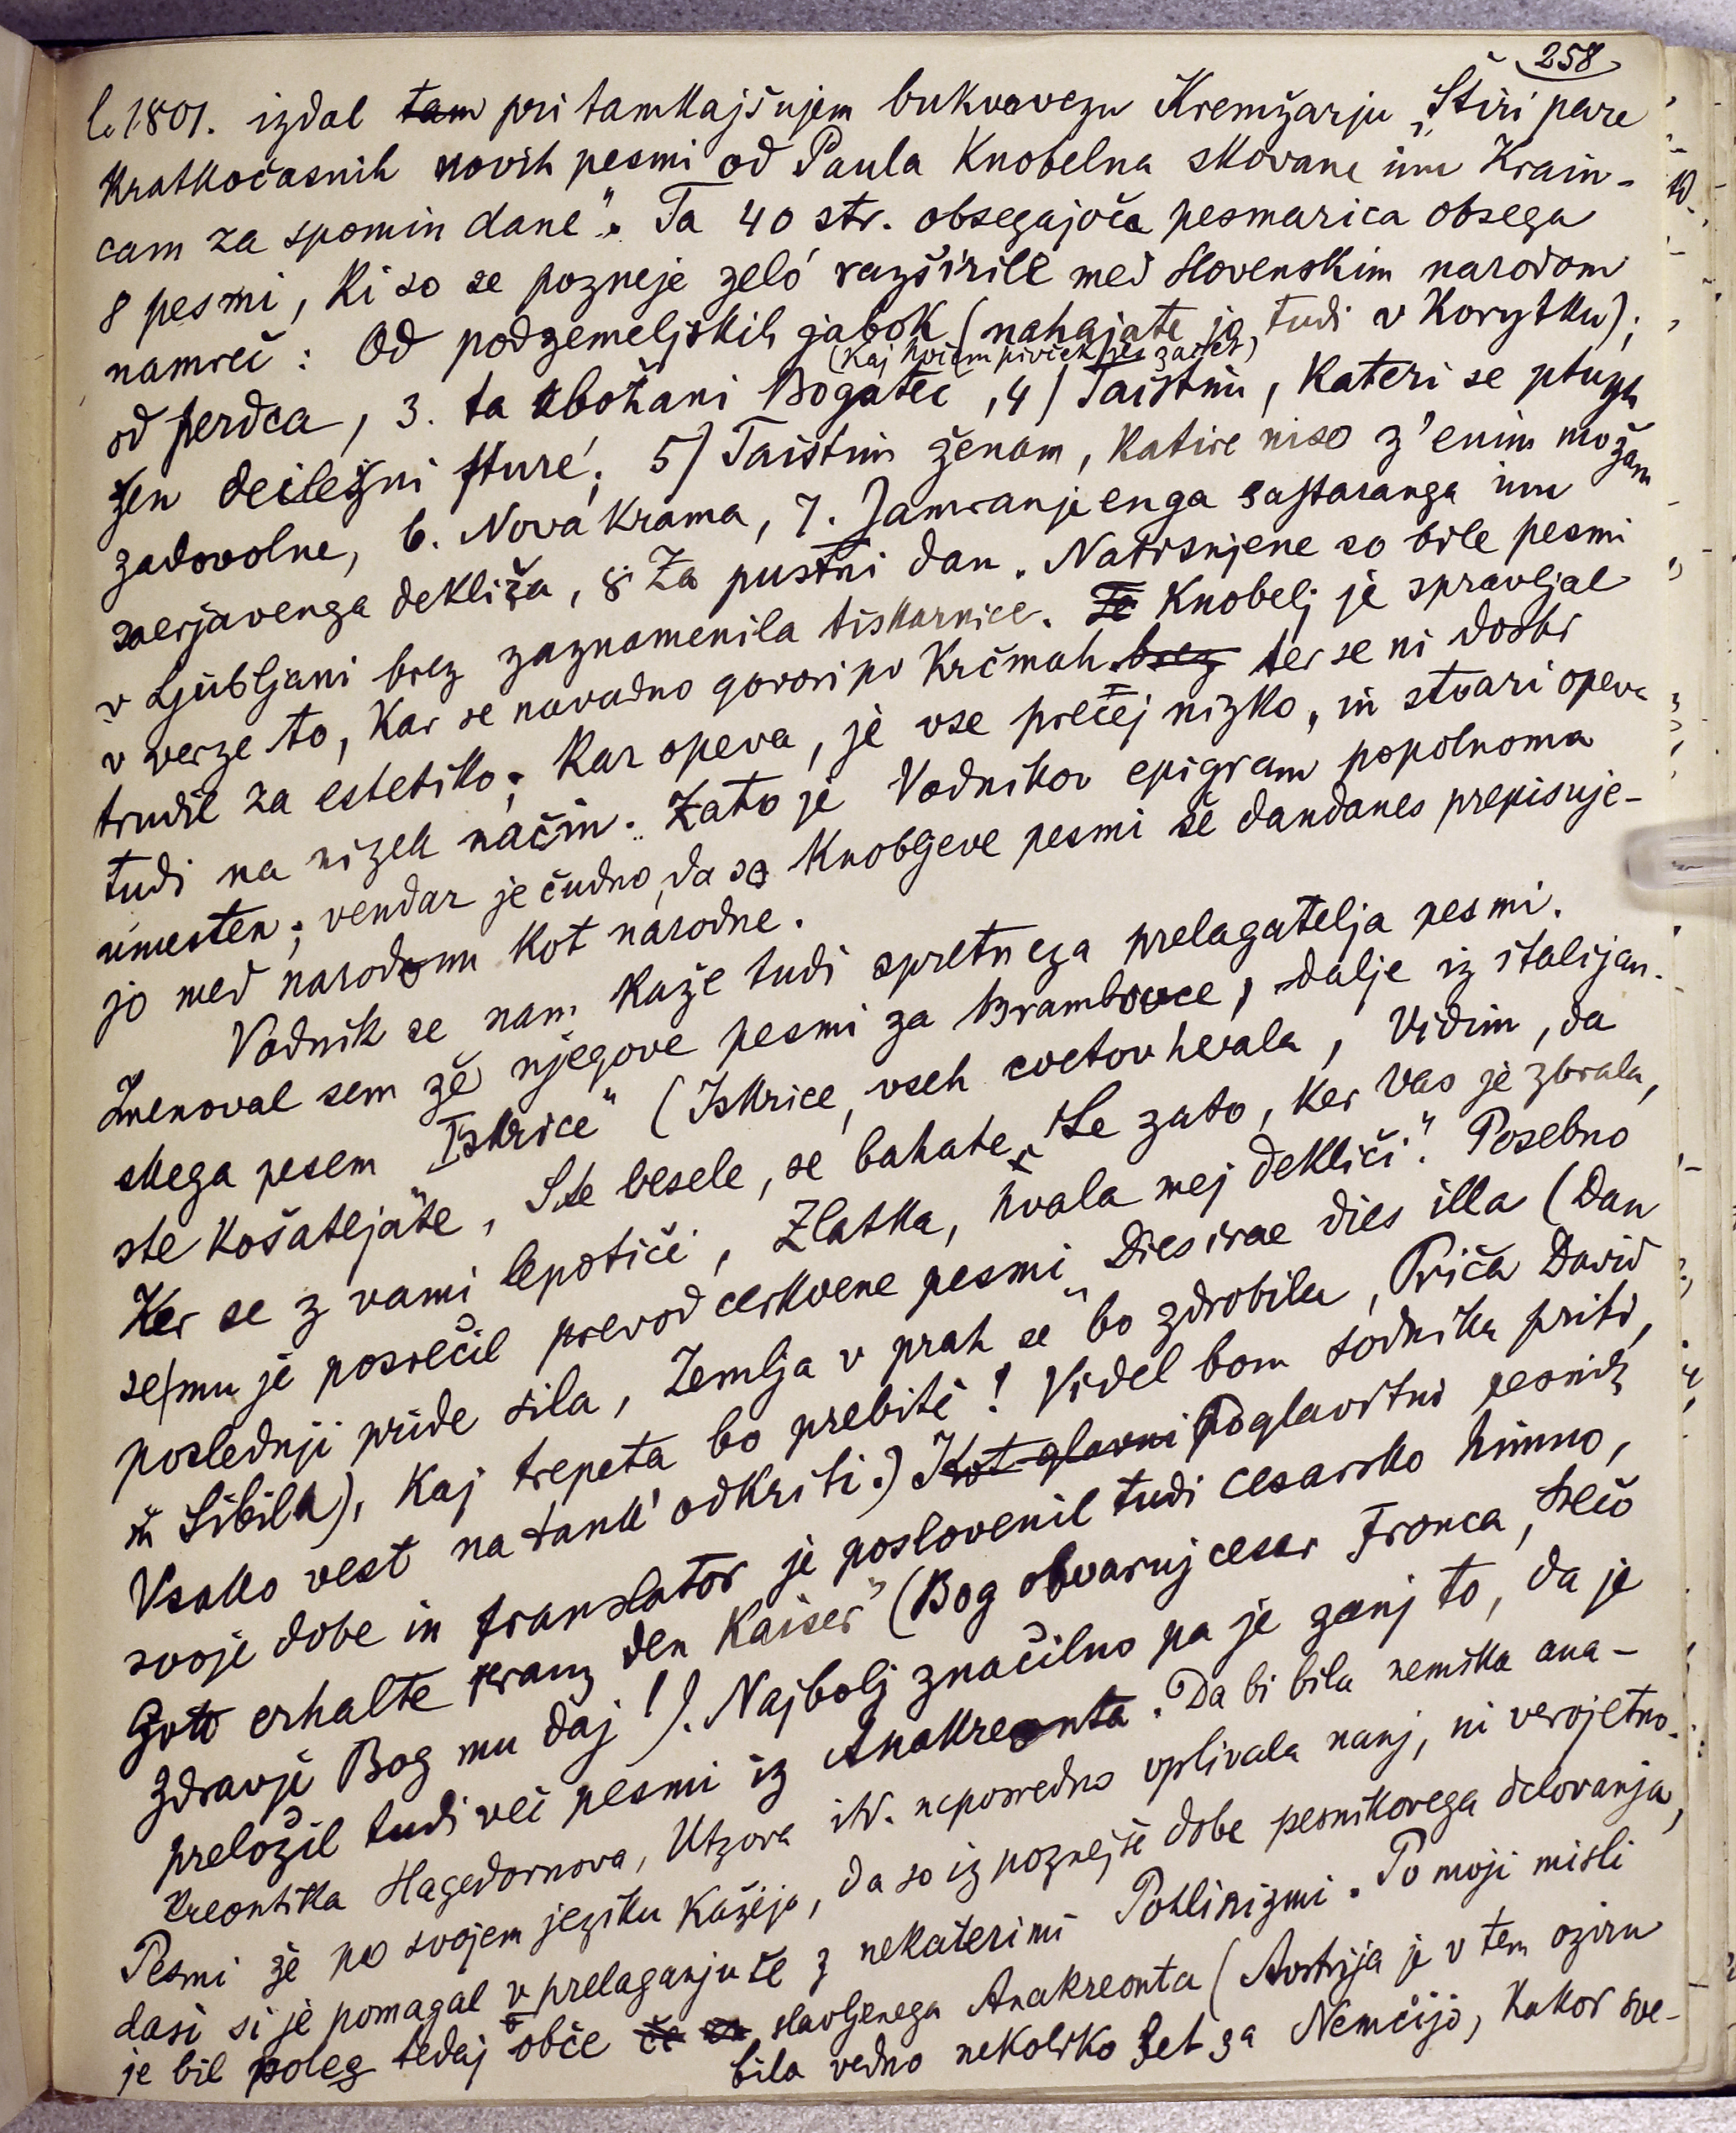 258
l. 1801. izdal tam pri tamkajšnjem bukvovezu Kremžarju „Štiri pare
kratkočasnih novih pesmi od Paula Knobelna skovane inu Krain-
cam za spomin dane“. Ta 40 str. obsegajoča pesmarica obsega
8 pesmi, ki so se pozneje zeló razširile med slovenskim narodom
namreč: Od podzemeljskih jabok (nahajate jo tudi v Korytku);
(Kaj hočem pivček začet)
od perdca, 3. ta obožani Bogatec, 4) Taistim, kateri se
deiležni sturé; 5) Taistim ženam, katire niso z'enim možam
zadovolne, 6. Nova krama, 7. Jamranje enga sastaranga inu
saerjavenga dekliča, 8. Za pustni dan. Natisnjene so bile pesmi
v Ljubljani brez zaznamenila tiskarnice. Te Knobelj je spravljal
v verze to, kar se navadno govori po krčmah brez ter se ni dosti
trudil za estetiko; kar opeva, je vse prečej nizko, in stvari opeva
tudi na nizek način. Zato je Vodnikov epigram popolnoma
umesten; vendar je čudno, da se Knobljeve pesmi še dandanes prepisuje-
jo med narodom kot narodne.
Vodnik se nam kaže tudi spretnega prelagatelja pesmi.
Imenoval sem že njegove pesmi za Brambovce, dalje iz italijan-
skega pesem „Iskrice“ (Iskrice, vseh cvetov hvala, Vidim, da
ste košatejäte, Ste vesele, se bahate, Le zato, ker Vas je zbrala,
Ker se z vami lepotiči, Zlatka, hvala mej dekliči“. Posebno
se mu je posrečil prevod cerkvene pesmi „Dies irae dies illa (Dan
poslednji pride sila, Zemlja v prah se bo zdrobila, Priča David
in Sibila), Kaj trepeta bo prebiti! Videl bom sodnika priti,
Vsako vest na tank' odkriti.) Kot glavni Poglavitni pesnik
svoje dobe in translator je poslovenil tudi cesarsko himno,
Gott erhalte Franz den Kaiser“ (Bog obvaruj cesar Franca, Srečo
zdravje Bog mu daj!). Najbolj značilno pa je zanj to, da je
preložil tudi več pesmi iz Anakreonta. Da bi bila nemška ana-
kreontika Hagedornova, Utzova itd. neposredno vplivala nanj, ni verojetno.
Pesmi že po svojem jeziku kažejo, da so iz poznejše dobe pesnikovega delovanja,
dasi si je pomagal v prelaganju še z nekaterimi Pohlinizmi. Po moji misli
je bil poleg tedaj obče slavljenega Anakreonta (Avstrija je v tem oziru
bila vedno nekoliko let za Nemčijo, kakor sve-